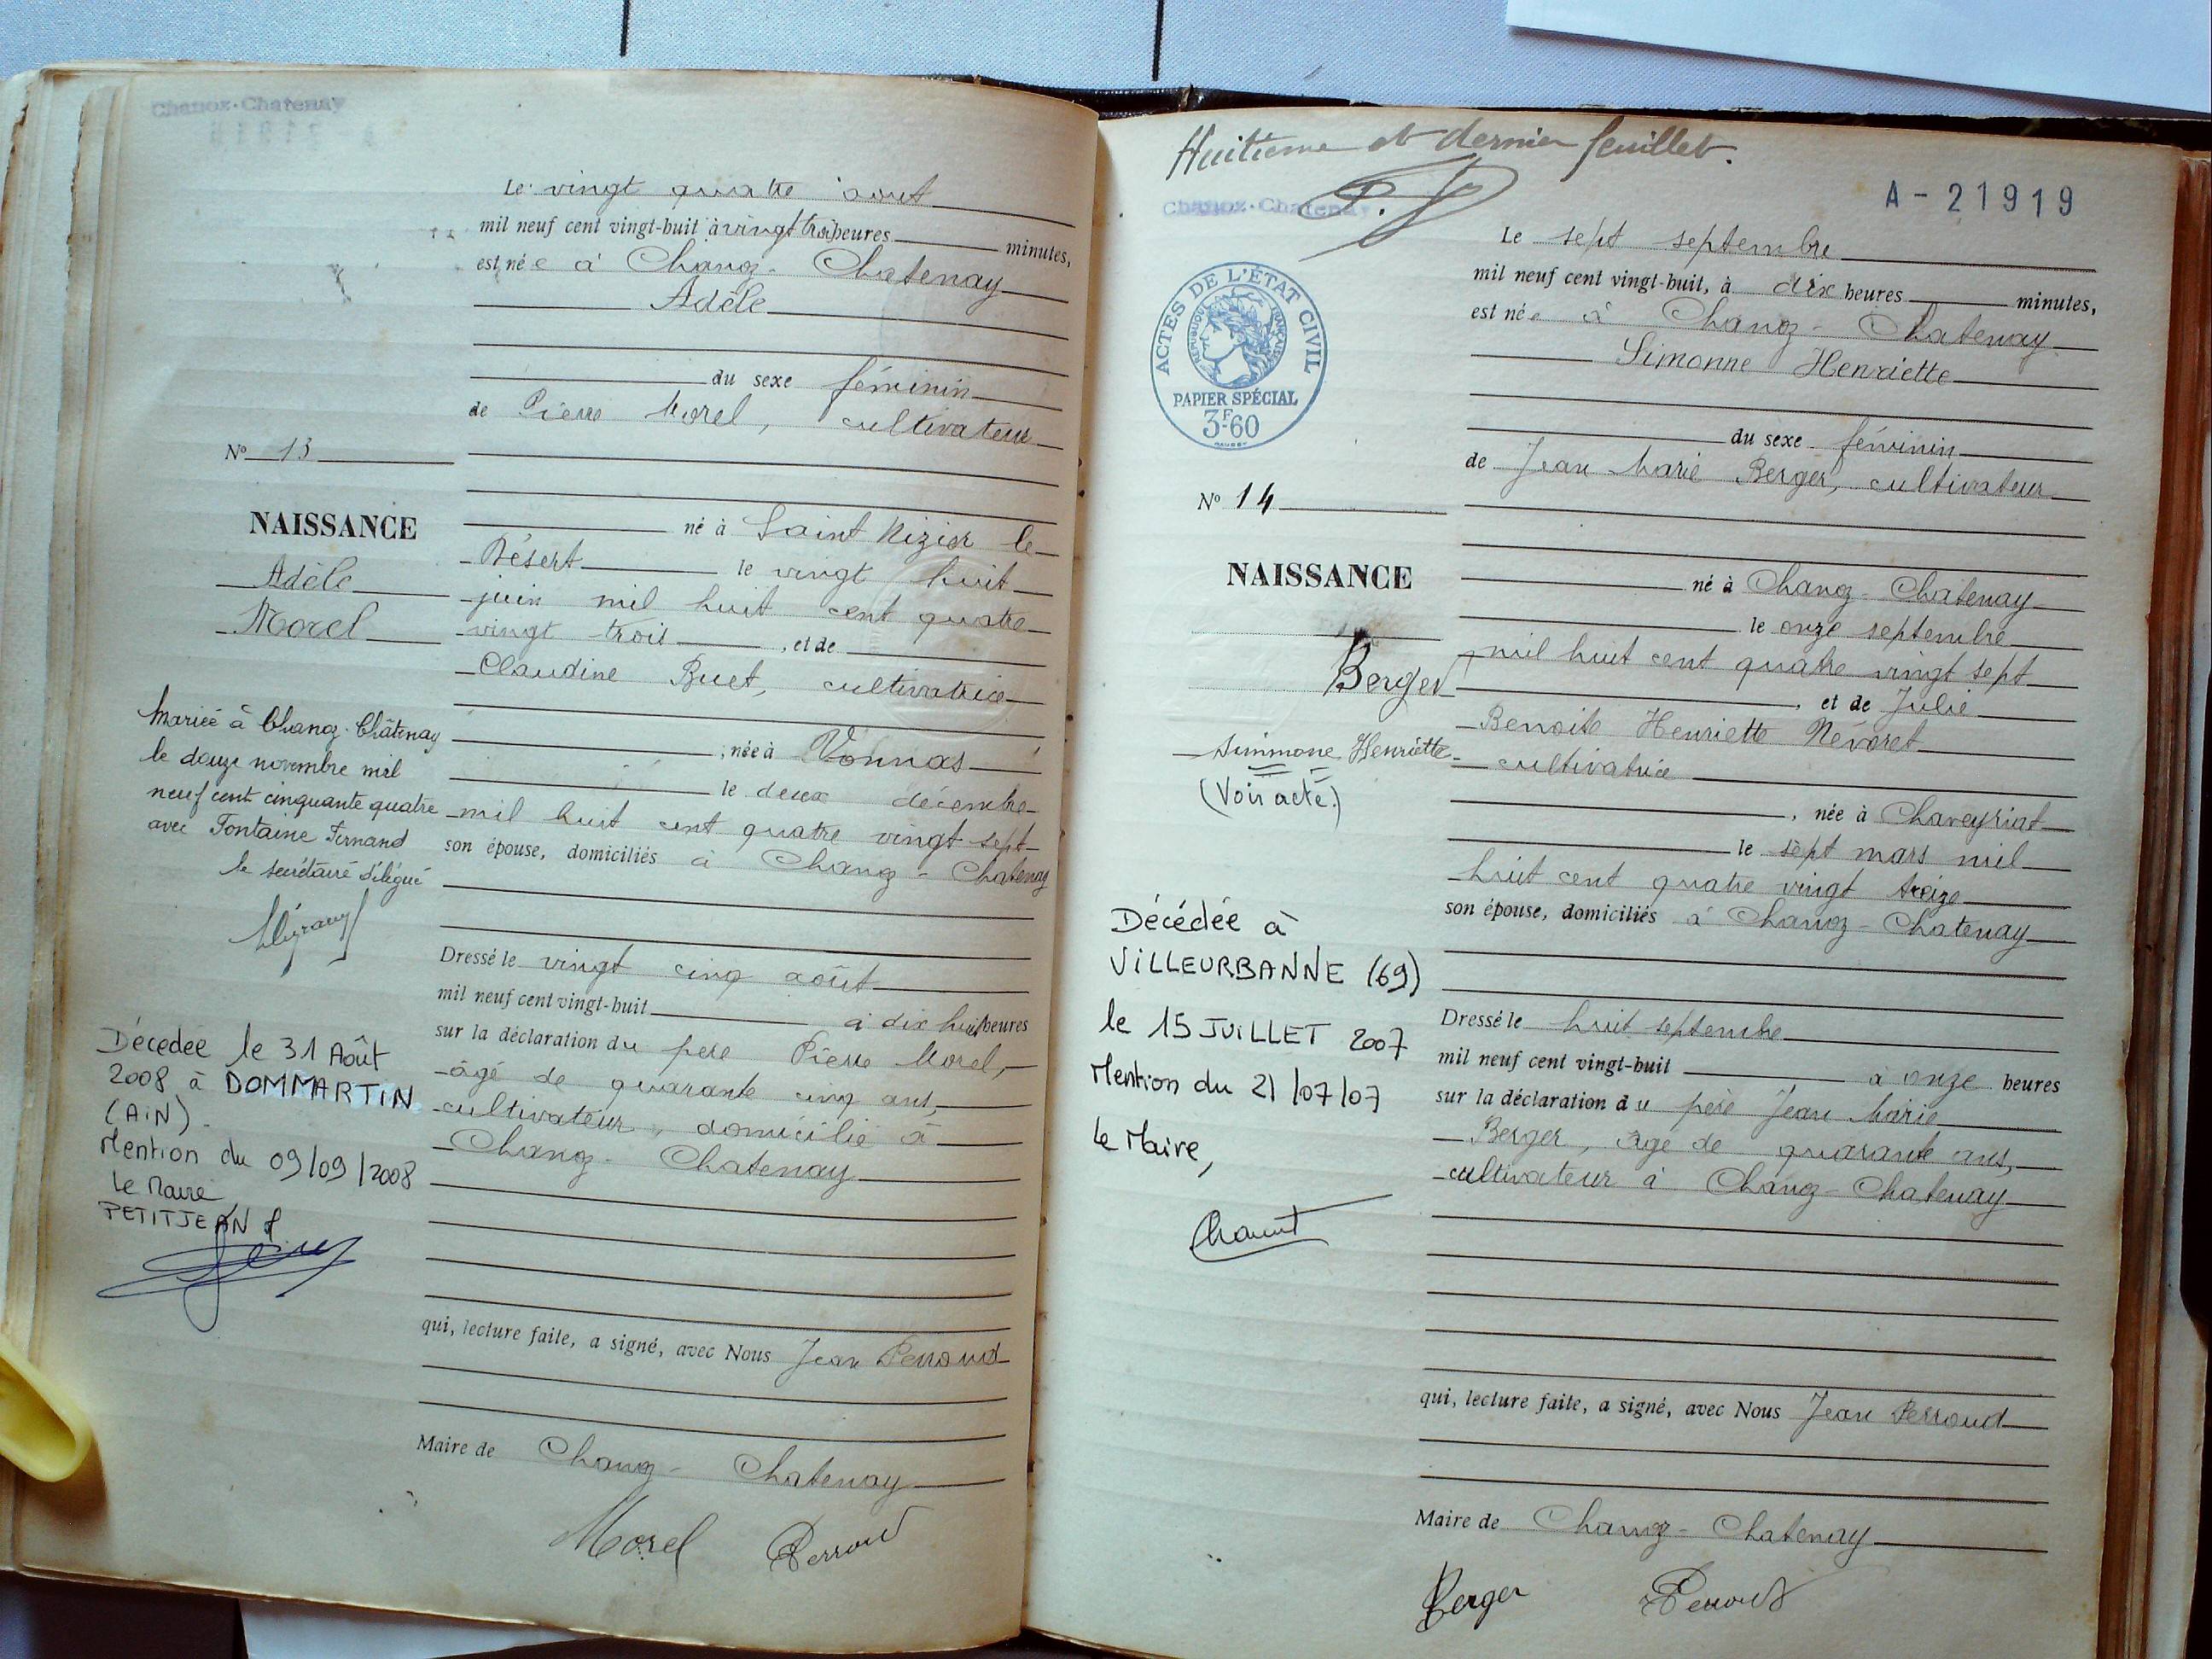 Chanoz-Chatenay
Le vingt quatre aout
mil neuf cent vingt-huit à vingt trois heures minutes,
est née à Chanoz-Chatenay
Adèle
du sexe féminin
de Pierre Morel, cultivateur
N° 13
NAISSANCE
Adèle
Morel
né à Saint Nizier le
Désert le vingt huit
juin mil huit cent quatre
vingt trois, et de
Claudine Buet, cultivatrice
, née à Vonnas
le deux décembre
mil huit cent quatre vingt sept
son épouse, domiciliés à Chanoz-Chatenay
Mariée à Chanoz-Châtenay
le douze novembre mil
neuf cent cinquante quatre
avec Fontaine Fernand
le secrétaire délégué
Dressé le vingt cinq août
mil neuf cent vingt-huit à dix huit heures
sur la déclaration du père Pierre Morel,
âgé de quarante cinq ans,
cultivateur, domicilié à
Chanoz-Chatenay
Décédée le 31 Août
2008 à DOMMARTIN
(AiN)
Mention du 09/09/2008
Le Maire
PETITJEAN
qui, lecture faite, a signé, avec Nous Jean Perroud
Maire de Chanoz-Chatenay
Morel Perroud
Huitième et dernier feuillet.
Chanoz-Chatenay
A-21919
ACTES DE L'ÉTAT CIVIL
RÉPUBLIQUE FRANÇAISE
PAPIER SPÉCIAL
3F60
Le sept septembre
mil neuf cent vingt-huit, à dix heures minutes,
est née à Chanoz-Chatenay
Simonne Henriette
du sexe féminin
de Jean Marie Berger, cultivateur
N° 14
NAISSANCE
Berger
Simmone Henriette
(Voir acte.)
né à Chanoz-Chatenay
le onze septembre
mil huit cent quatre vingt sept
, et de Julie
Benoite Henriette Névoret
cultivatrice
, née à Chaveyriat
le sept mars mil
huit cent quatre vingt treize
son épouse, domiciliés à Chanoz-Chatenay
Décédée à
ViLLEURBANNE (69)
le 15 JUiLLET 2007
Mention du 21/07/07
Le Maire,
Dressé le huit septembre
mil neuf cent vingt-huit à onze heures
sur la déclaration du père Jean Marie
Berger, âgé de quarante ans,
cultivateur à Chanoz-Chatenay
qui, lecture faite, a signé, avec Nous Jean Perroud
Maire de Chanoz-Chatenay
Berger Perroud